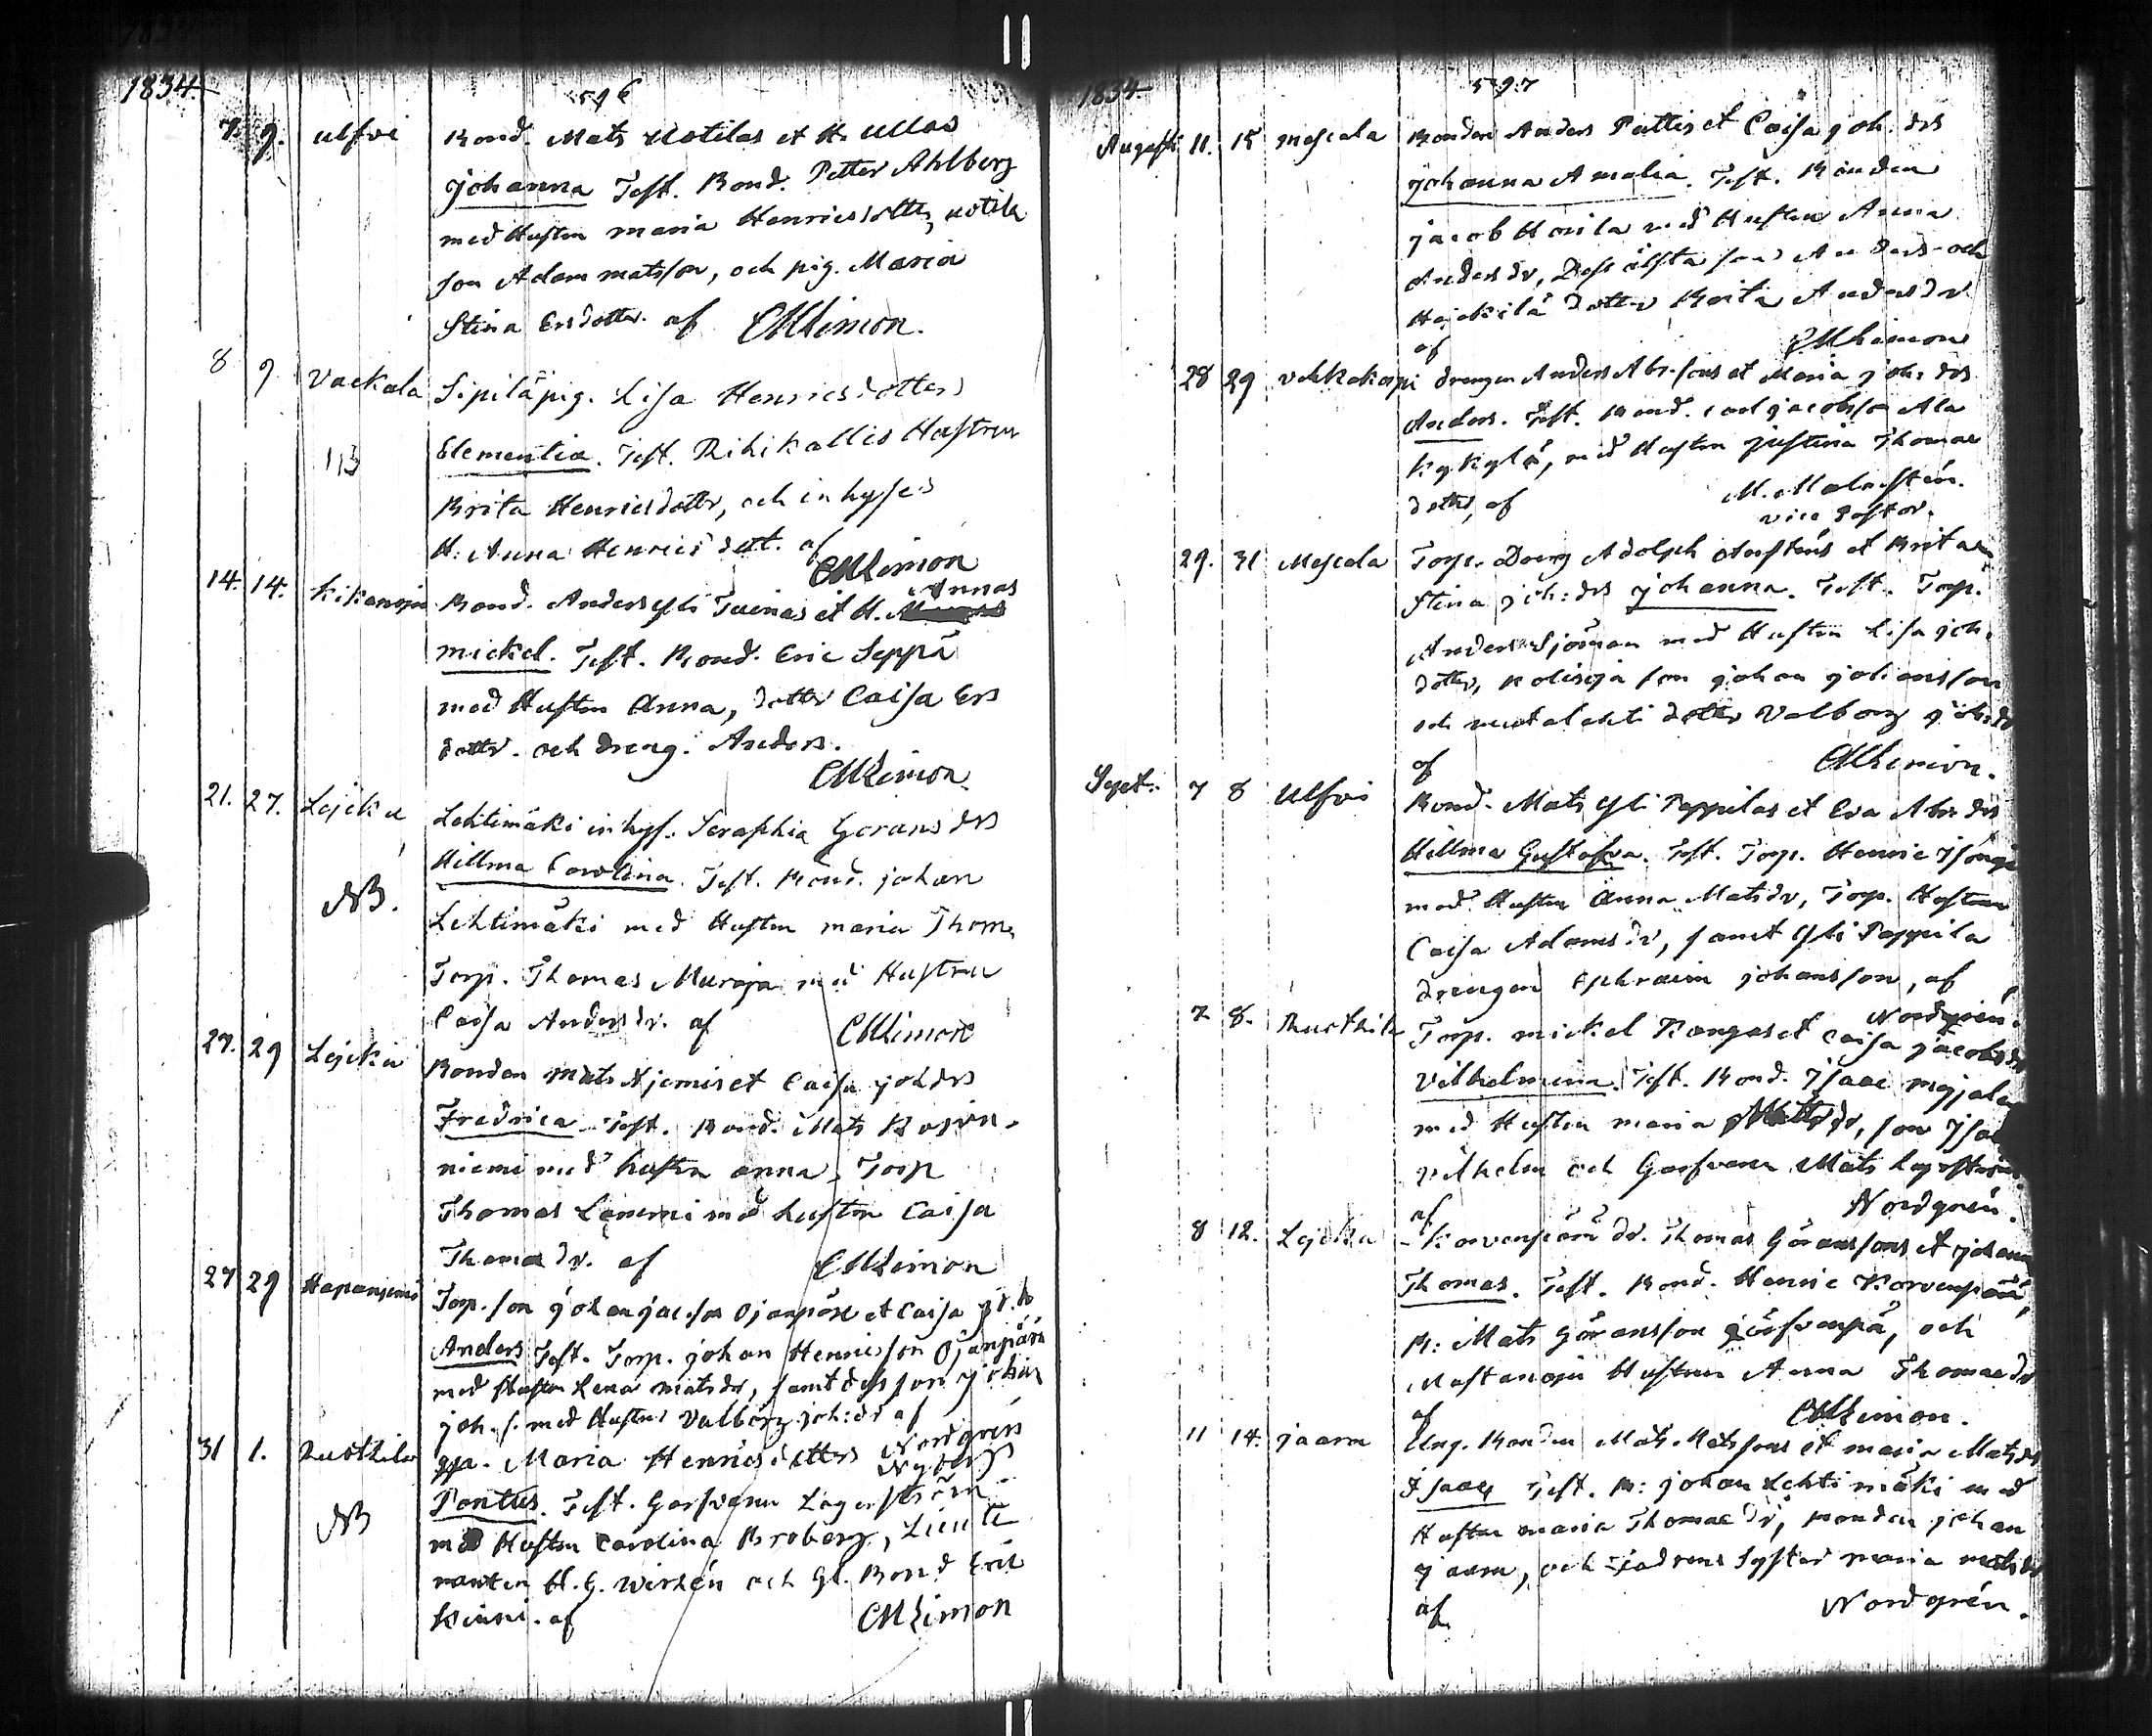 1834.
596
7. 9. Ulfvi Bond. Mats Uotilas et H. Ullas
Johanna Test. Bond. Petter Ahlberg
med Hustru Maria Henricsdotter, Uotila
son Adam Matsson, och pig. Maria
Stina Ersdotter. af CMLimon.
8 9. Vackala Sipilä pig. Lisa Henricsdotters
Elementia. Test. Rihikallis Hustru
113
Brita Henricsdottr, och inhyses
H: Anna Henrics dott. af CMLimon
14. 14. Kikanoja Bond. Anders Yli Tuinas et H. Annas
Mickel. Test. Bond. Eric Seppä
med Hustru Anna, dotter Caisa Ers
dottr. och dreng. Anders.
CMLimon.
21. 27. Lejcku Lehtimäki inhys. Seraphia Görans drs
Hillma Carolina. Test. Bond. Johan
NB.
Lehtimäki med Hustru Maria Thom.
Torp. Thomas Muroja med Hustru
Caisa Andersdr. af CMLimon
27. 29 Lejcku Bonden Mats Njemis et Caisa Joh drs
Fredrica Test. Bond. Mats
niemi med hustru Anna, Torp
Thomas Lanemi med hustru Caisa
Thomædr. af CMLimon
27 29 Hapaniemi Torp. son Johan Jac.son Ojanpää et Caisa
Anders Test. Torp. Johan Henricsson Ojanpään
med Hustru Lena Matsdr, samt dess son Johan
joh. s. med Hustru Valborg joh: dr af Nordgrén
31 1. Rustkila Maria Henricsdotters
Pontus. Test. Garfvaren Lagerström
NB
med Hustru Carolina Broberg, Lieute
nanten H. G. Wirzén och Gl. Bond Erik
af CMLimon
1834
597
Augusti 11. 15 Mascala Bonden Anders Pættis et Caisa Joh. drs
Johanna Amalia. Test. Bonden
Jacob Honila med Hustru Anna
Andersdr, Dess älsta son Anders och
Hejckilä dotter Brita Andersdr
af CMLimon
28 29 Vehkakorpi Drengen Anders Abr.sons et Maria Joh: drs
Anders. Test. Bond. Carl Jacobsson Ala
Kykylä, med Hustru Justina Thomæ
dotter, af M. Malmsten.
vice Pastor.
29. 31 Mascala Torp. Dreng Adolph et Brita
Stina Joh: drs Johanna. Test. Torp.
Anders Sjöman med Hustru Lisa joh.
dotter, Kolisoja son Johan Johansson
och dotter Valborg Joh:dr
af CMLimon.
Sept. 7 8 Ulfvi Bond. Mats Yli Pappilas et Eva Abr: drs
Hillma Gustafva. Test. Torp. Henric
med Hustru Anna Matsdr, Torp. Hustru
Caisa Adamsdr, samt Yli Pappila
drengen Ephraim Johansson, af
Nordgrén.
7 8. Rustkila Torp. Mickel Kangas et Caisa Jacobsdr
Vilhelmina. Test. Bond. Isaac
med Hustru Maria, son Isac
Vilhelm och Garfvaren Mats Lagerström
af Nordgrén.
8 12. Lejcku Korvenpään dr. Thomas Göranssons et Johan
Thomas. Test. Bond. Henric Korvenpää,
B: Mats Göransson, och
Mastanoja Hustrun Anna Thomædr
af CMLimon.
11 14. Jaara Ung. Bonden Mats Matssons et Maria Matsdr
Isaac Test. B: Johan Lehtimäki med
Hustru Maria Thomædr, Bonden Johan
Jaara, och Syster Maria Matsdr
af Nordgrén.